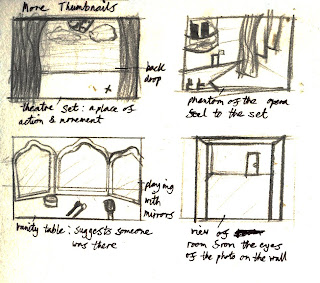 More Thumbnails
back
drop
theatre set : a place of
action & movement
phantom of the opera
feel to the set
playing
with
mirrors
vanity table : suggests someone
was there
view of
room from the eyes
of the photo on the wall